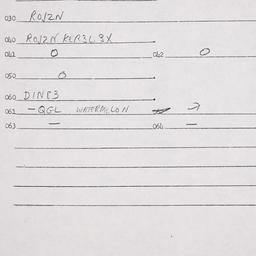 030 ROJ2N
040 ROJ2N KER3L3X
041 O 042 O
050 O
060 DIN83
061 -QGL WATERMELON →
063 — 064 —